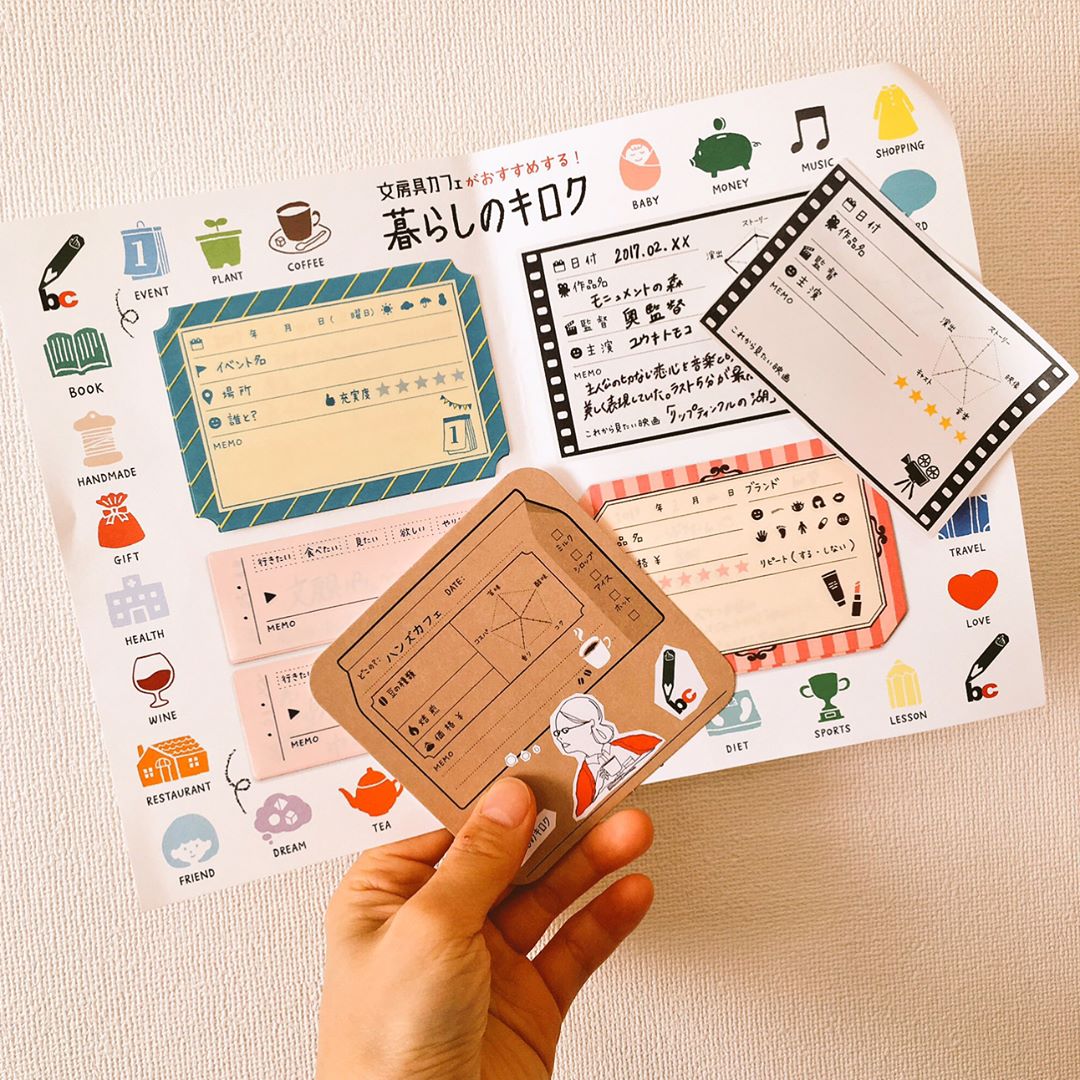 文房具カフェがおすすめする!
暮らしのキロク
bc
EVENT
PLANT
COFFEE
BABY
MONEY
MUSIC
SHOPPING
BOOK
HANDMADE
GIFT
HEALTH
WINE
RESTAURANT
FRIEND
DREAM
TEA
年 月 日( 曜日)
イベント名
場所
充実度
誰と?
MEMO
1
日付 2017.02.XX
ストーリー
演出
作品名
モニュメントの森
監督 奥監督
主演 ユウキトモコ
MEMO
美しく表現していた。ラスト5分が
これから見たい映画 「クップティンクルの湖」
日付
作品名
監督
主演
MEMO
これから見たい映画
演出
ストーリー
キャスト
映像
音楽
行きたい 食べたい 見たい 欲しい
MEMO
行きたい
MEMO
年 月 日 ブランド
品名
価格¥
リピート(する・しない)
etc
どこの?: ハンズカフェ DATE:
豆の種類
焙煎
価格 ¥
MEMO
苦味
酸味
コスパ
コク
香り
ミルク
シロップ
アイス
ホット
bc
のキロク
TRAVEL
LOVE
bc
DIET
SPORTS
LESSON